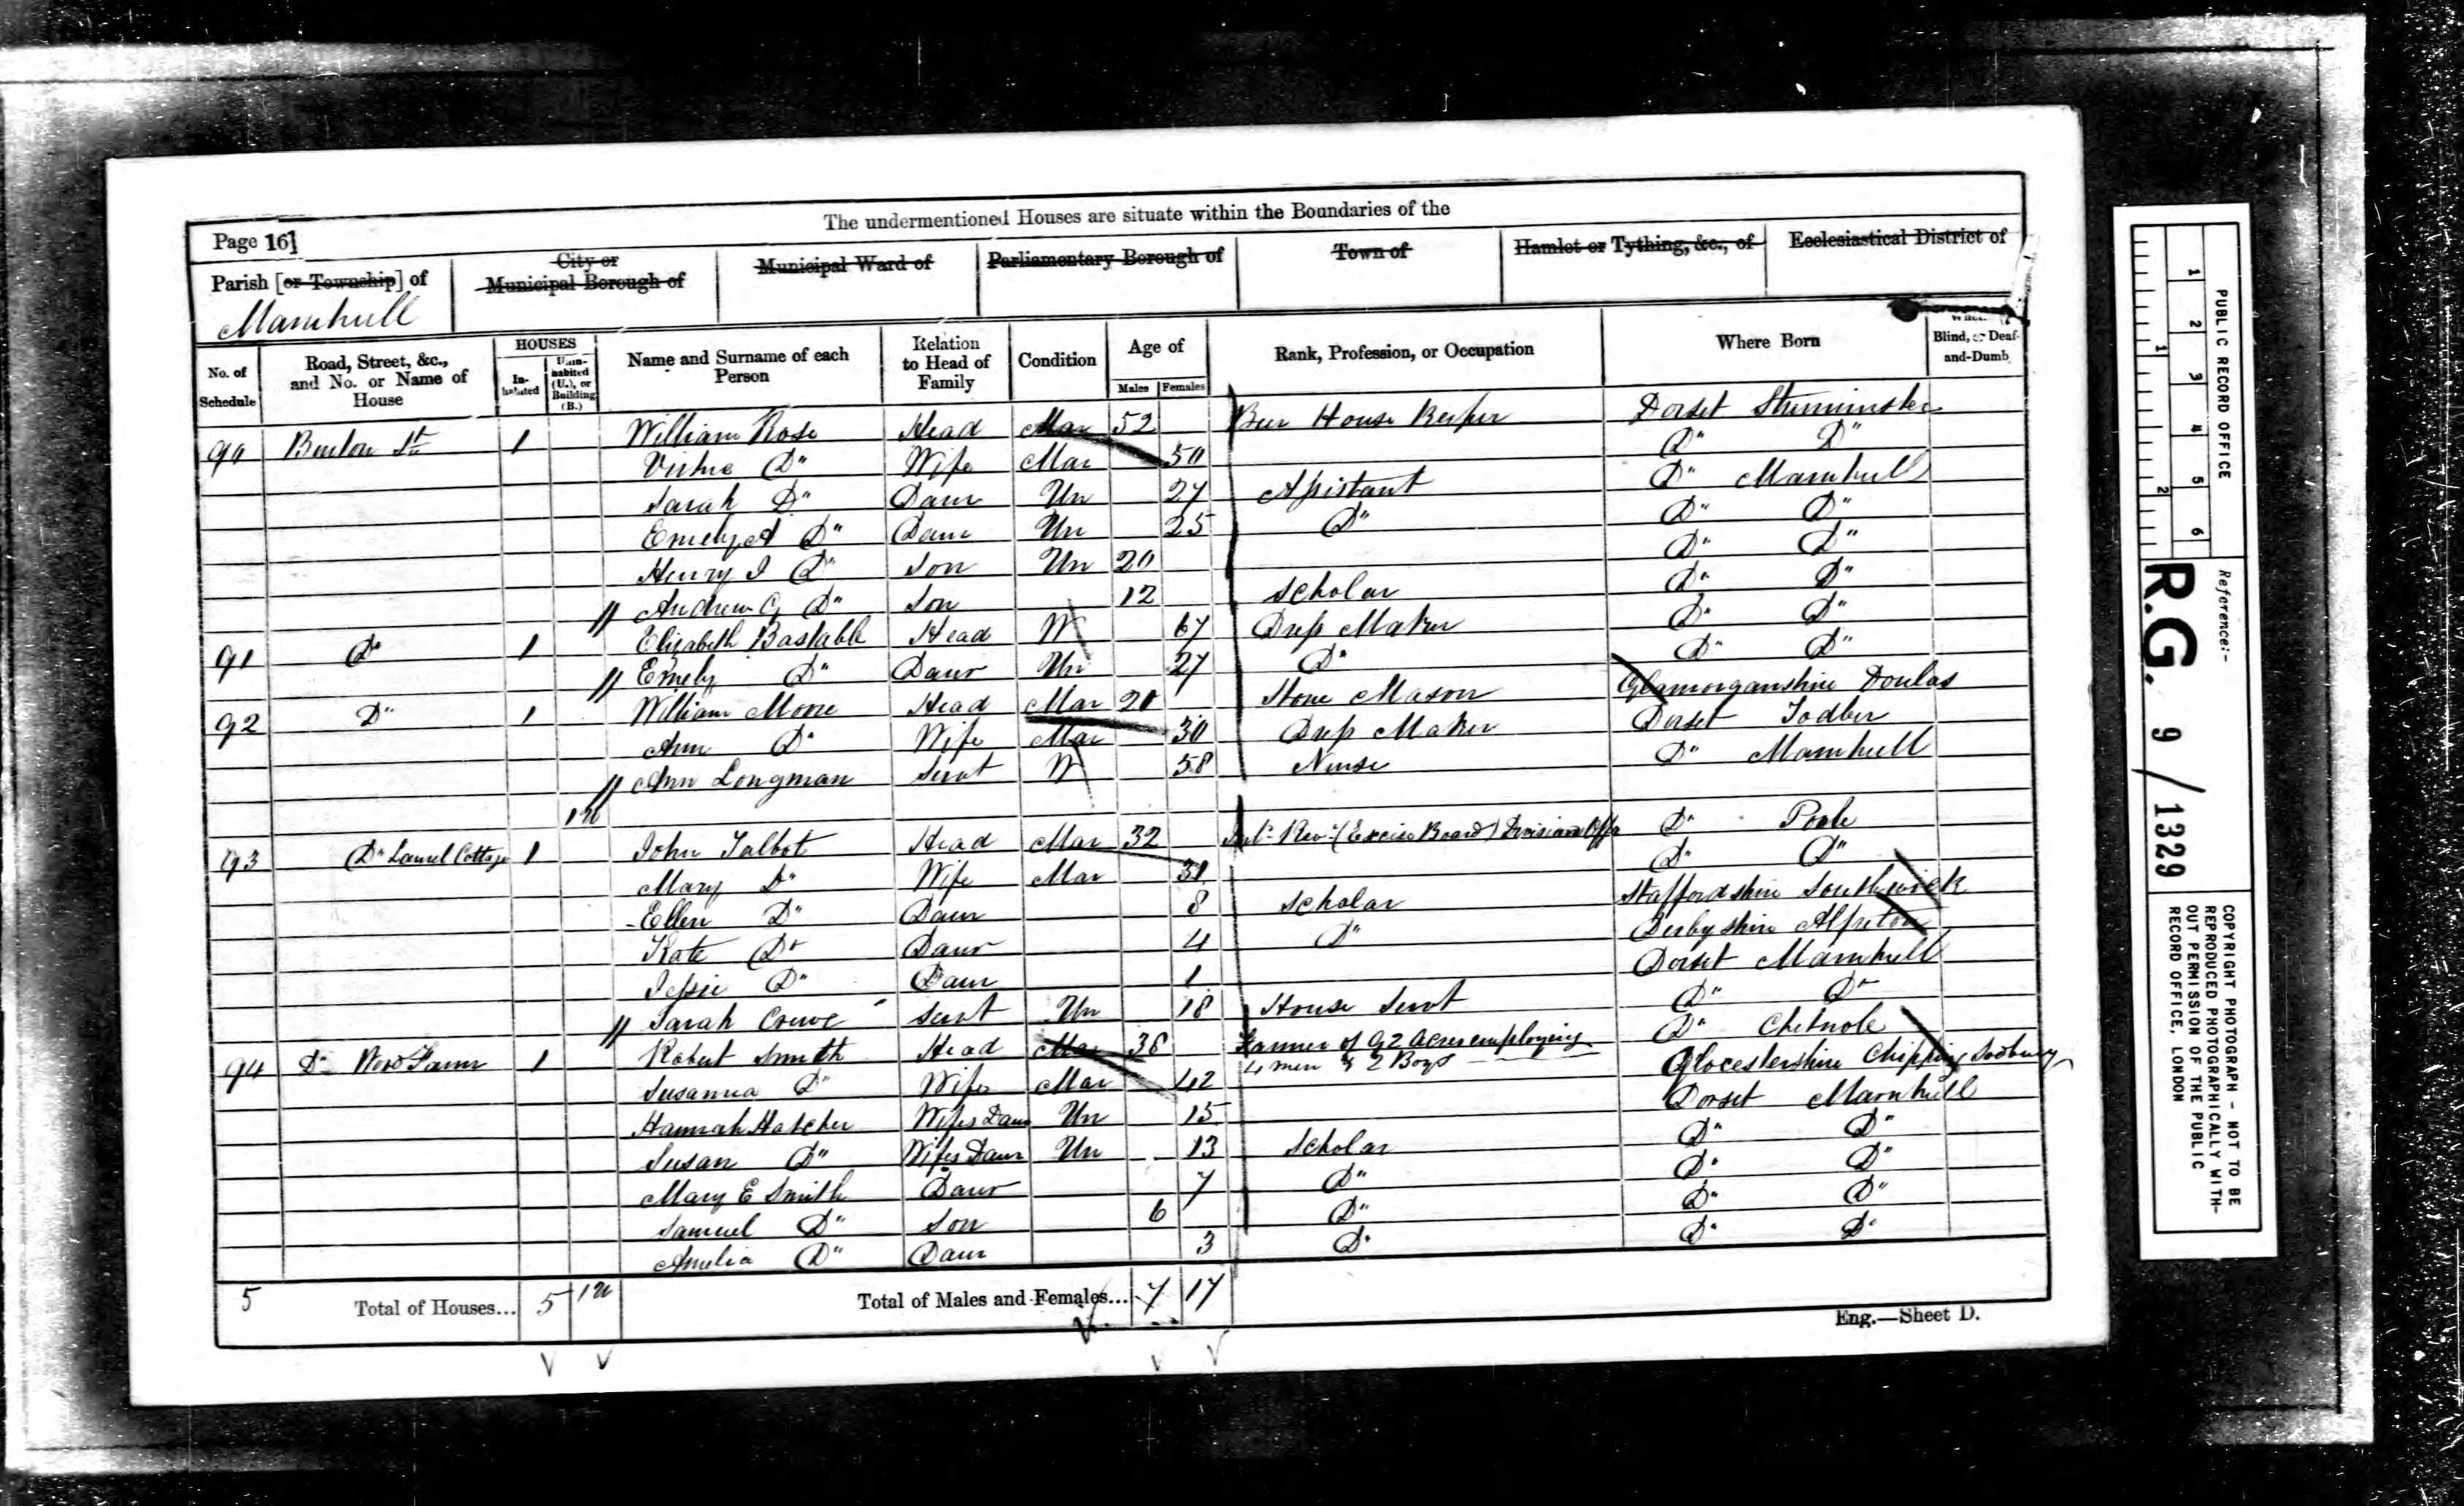 The undermentioned Houses are situate within the Boundaries of the
Page 16]
Parish [or Township] of
Marnhull
City or
Municipal Borough of
Municipal Ward of
Parliamentary Borough of
Town of
Hamlet or Tything, &c., of
Ecclesiastical District of
No. of Schedule
Road, Street, &c., and No. or Name of House
HOUSES
In-habited
Unin-habited (U.), or Building (B.)
Name and Surname of each Person
Relation to Head of Family
Condition
Age of
Males Females
Rank, Profession, or Occupation
Where Born
Blind, or Deaf-and-Dumb
90 Burton St 1 William Rose Head Mar 52 Beer House Keeper Dorset Sturminster
Virtue Do Wife Mar 50 Do Do
Sarah Do Daur Un 27 Assistant Do Marnhull
Emely A Do Daur Un 25 Do Do Do
Henry J Do Son Un 20 Do Do
Andrew G Do Son 12 Scholar Do Do
91 Do 1 Elizabeth Bastable Head W 67 Dress Maker Do Do
Emely Do Daur Un 27 Do Do Do
92 Do 1 William Head Mar Stone Mason Glamorganshire Doulas
Ann Do Wife Mar 30 Dress Maker Dorset Todber
Ann Longman Servt W 58 Nurse Do Marnhull
1 U
93 Do Laurel Cottage 1 John Talbot Head Mar 32 Inld Revu (Excise Board) Division Offr Do Poole
Mary Do Wife Mar 31 Do Do
Ellen Do Daur 8 Scholar Staffordshire Southwick
Kate Do Daur 4 Do Derbyshire Alfreton
Jessie Do Daur 1 Dorset Marnhull
Sarah Servt Un 18 House Servt Do Do
94 Do Farm 1 Robert Smith Head Mar 38 Farmer of 92 Acres employing Do Chetnole
4 men & 2 Boys
Susanna Do Wife Mar 42 Glocestershire Chipping Sodbury
Hannah Hatcher Wifes Daur Un 15 Dorset Marnhull
Susan Do Wifes Daur Un 13 Scholar Do Do
Mary E Smith Daur 7 Do Do Do
Samuel Do Son 6 Do Do Do
Amelia Do Daur 3 Do Do Do
5 Total of Houses... 5 1 U Total of Males and Females... 7 17
Eng.—Sheet D.
PUBLIC RECORD OFFICE
1 2 3 4 5 6
1 2
Reference:-
R.G. 9/1329
COPYRIGHT PHOTOGRAPH - NOT TO BE
REPRODUCED PHOTOGRAPHICALLY WITH-
OUT PERMISSION OF THE PUBLIC
RECORD OFFICE, LONDON